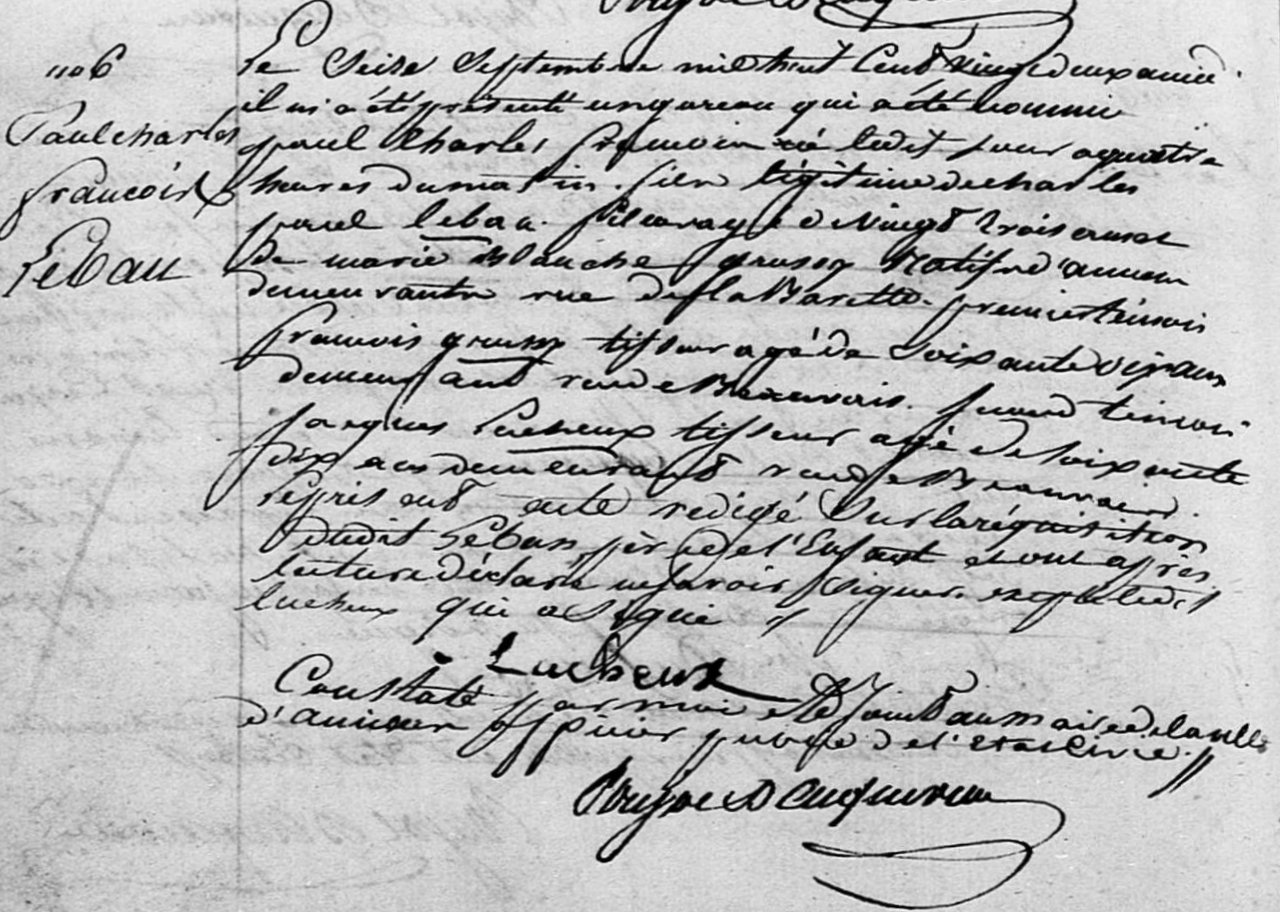 1106
Paul charles
francois
Lebau
Le Seize Septembre mil huit Cent Vingt deux a midi
il m'a été présenté un garcon qui a été nommé
paul Charles francois né ledit jour a quatre
heures du matin. fils légitime de charles
paul lebau. agé de Vingt trois ans et
de marie Blanche Natifs d'amiens
demeurants rue de la Barette. premier témoin
francois tisseur agé de Soixante Six ans
demeurant rue de Beauvais. second témoin
jacques Lucheux tisseur agé de soixante
dix ans demeurant rue de Beauvais.
le présent acte redigé Sur la réquisition
dudit Lebau père de l'Enfant et ont après
lecture déclaré ne savoir Signer excepté ledit
lucheux qui a Signé
Lucheux
Constaté par moi adjoint au maire de la ville
d'amiens officier public de l'etat Civil.